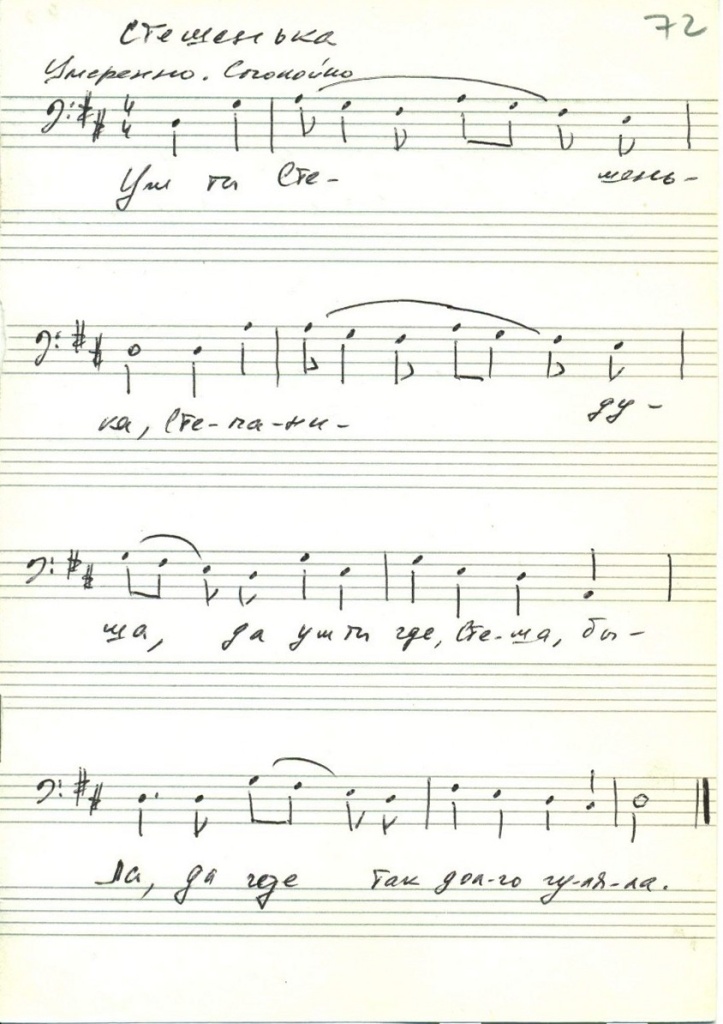 Стешенька
72
Умеренно. Спокойно
4
4
Уж ты Сте- шень-
ка, Сте-па-ни- ду-
ша, да уж ты где, Сте-ша, бы-
ла, да где так дол-го гу-ля-ла.